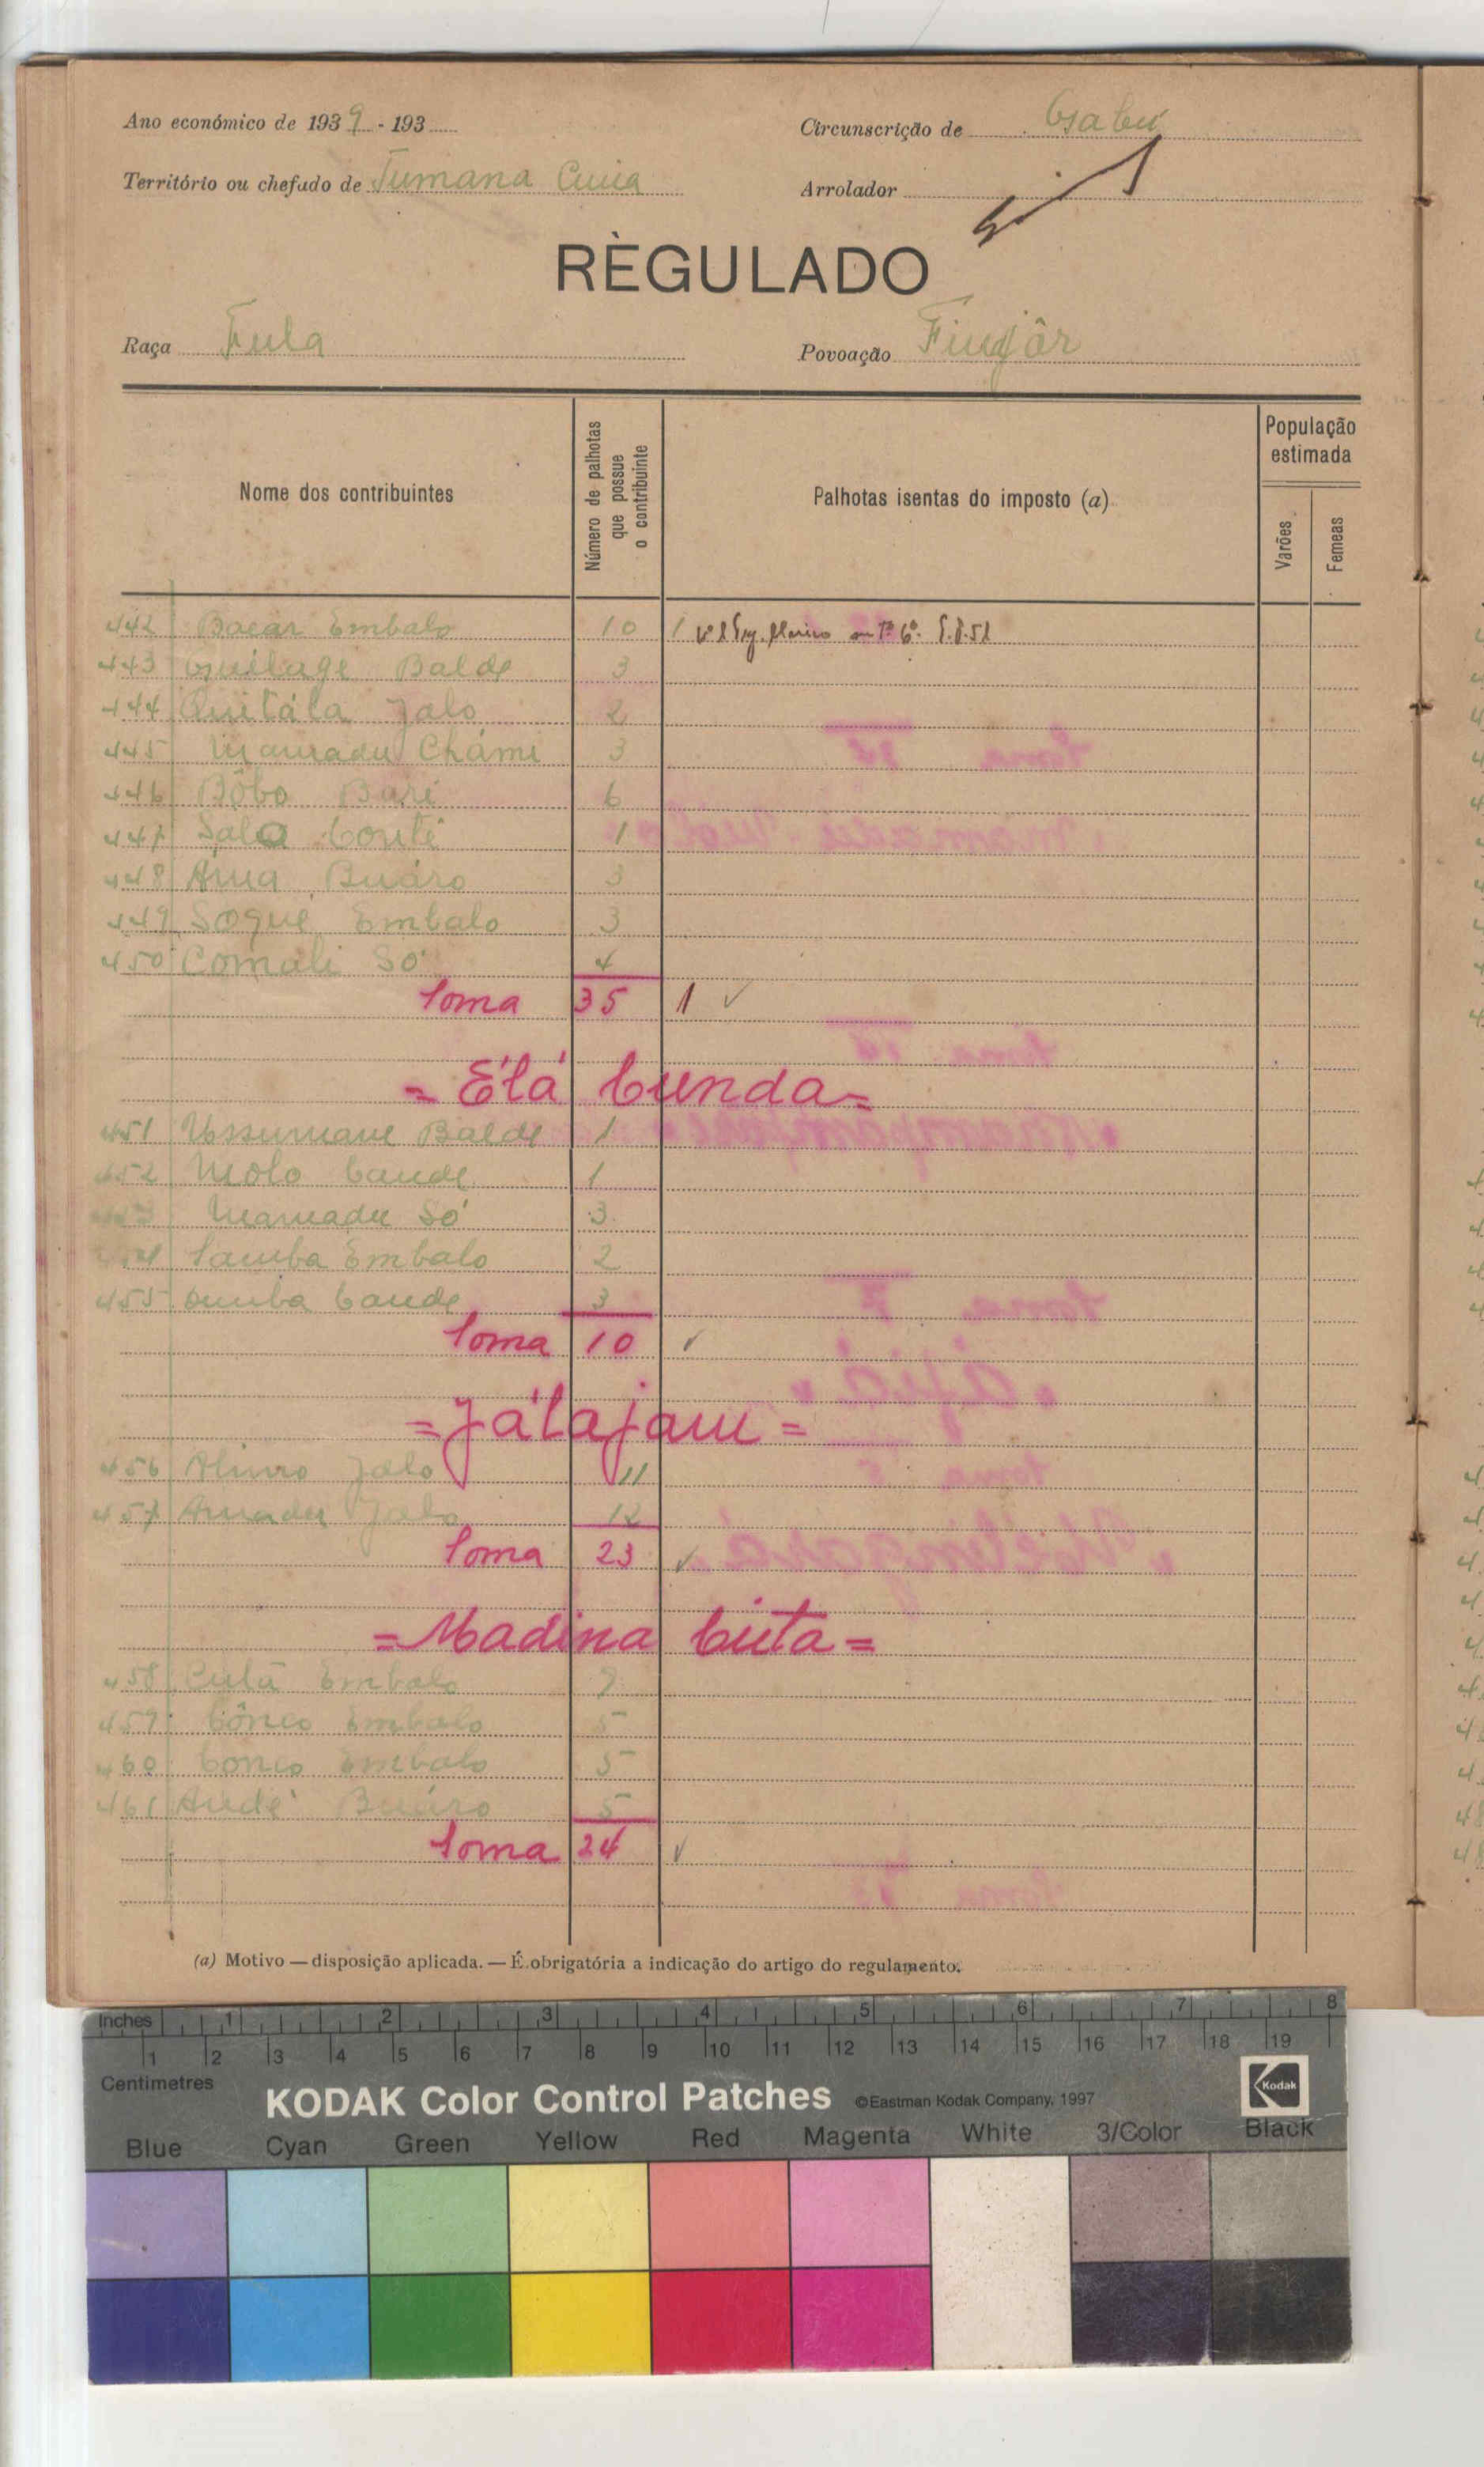 Ano económico de 1939 - 193
Circunscrição de Gabú
Território ou chefado de Tumana Cuia
Arrolador
RÈGULADO
Raça Fula
Povoação Findjôr
Nome dos contribuintes
Número de palhotas que possue o contribuinte
Palhotas isentas do imposto (a)
População estimada
Varões
Femeas
442 Bacar Embalo 10 1
443 Guilage Balde 3
444 Quitála Jalo 2
445 Mamadu Chámi 3
446 Bôbo Bari 6
447 Salo Conté 1
448 Áma Buáro 3
449 Soque Embalo 3
450 Comali Só 4
Soma 35 1 ✓
= Élá Cunda =
451 Ussumane Balde 1
452 Molo Cande 1
453 Mamadu Só 3
454 Samba Embalo 2
455 Demba Cande 3
Soma 10 ✓
= Jálajam =
456 Aliuro Jalo 11
457 Amadu Jalo 12
Soma 23 ✓
= Madina Cuta =
458 Cutá Embalo
459 Cônco Embalo 5
460 Conco Embalo 5
461 Buáro 5
Soma 24 ✓
(a) Motivo — disposição aplicada. — É obrigatória a indicação do artigo do regulamento.
Inches 1 2 3 4 5 6 7 8
1 2 3 4 5 6 7 8 9 10 11 12 13 14 15 16 17 18 19
Centimetres
KODAK Color Control Patches ©Eastman Kodak Company, 1997
Kodak
Blue Cyan Green Yellow Red Magenta White 3/Color Black